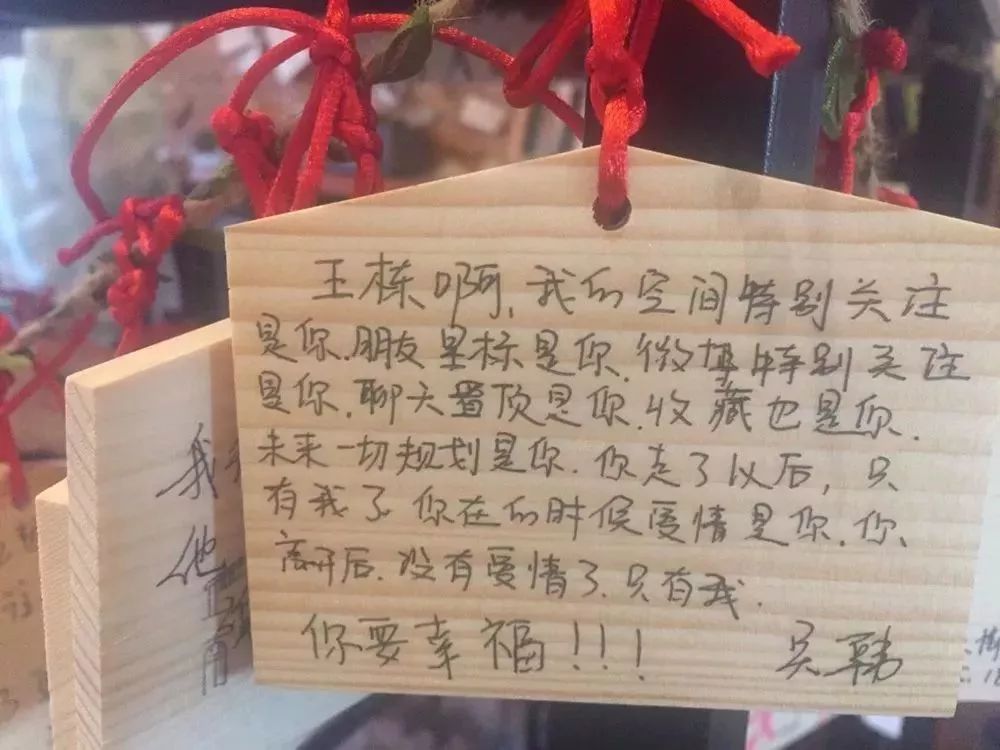 王栋啊，我的空间特别关注
是你.朋友星标是你.微博特别关注
是你.聊天置顶是你.收藏也是你.
未来一切规划是你.你走了以后，只
有我了.你在的时候爱情是你.你
离开后.没有爱情了.只有我.
你要幸福!!!
吴韩
我
他